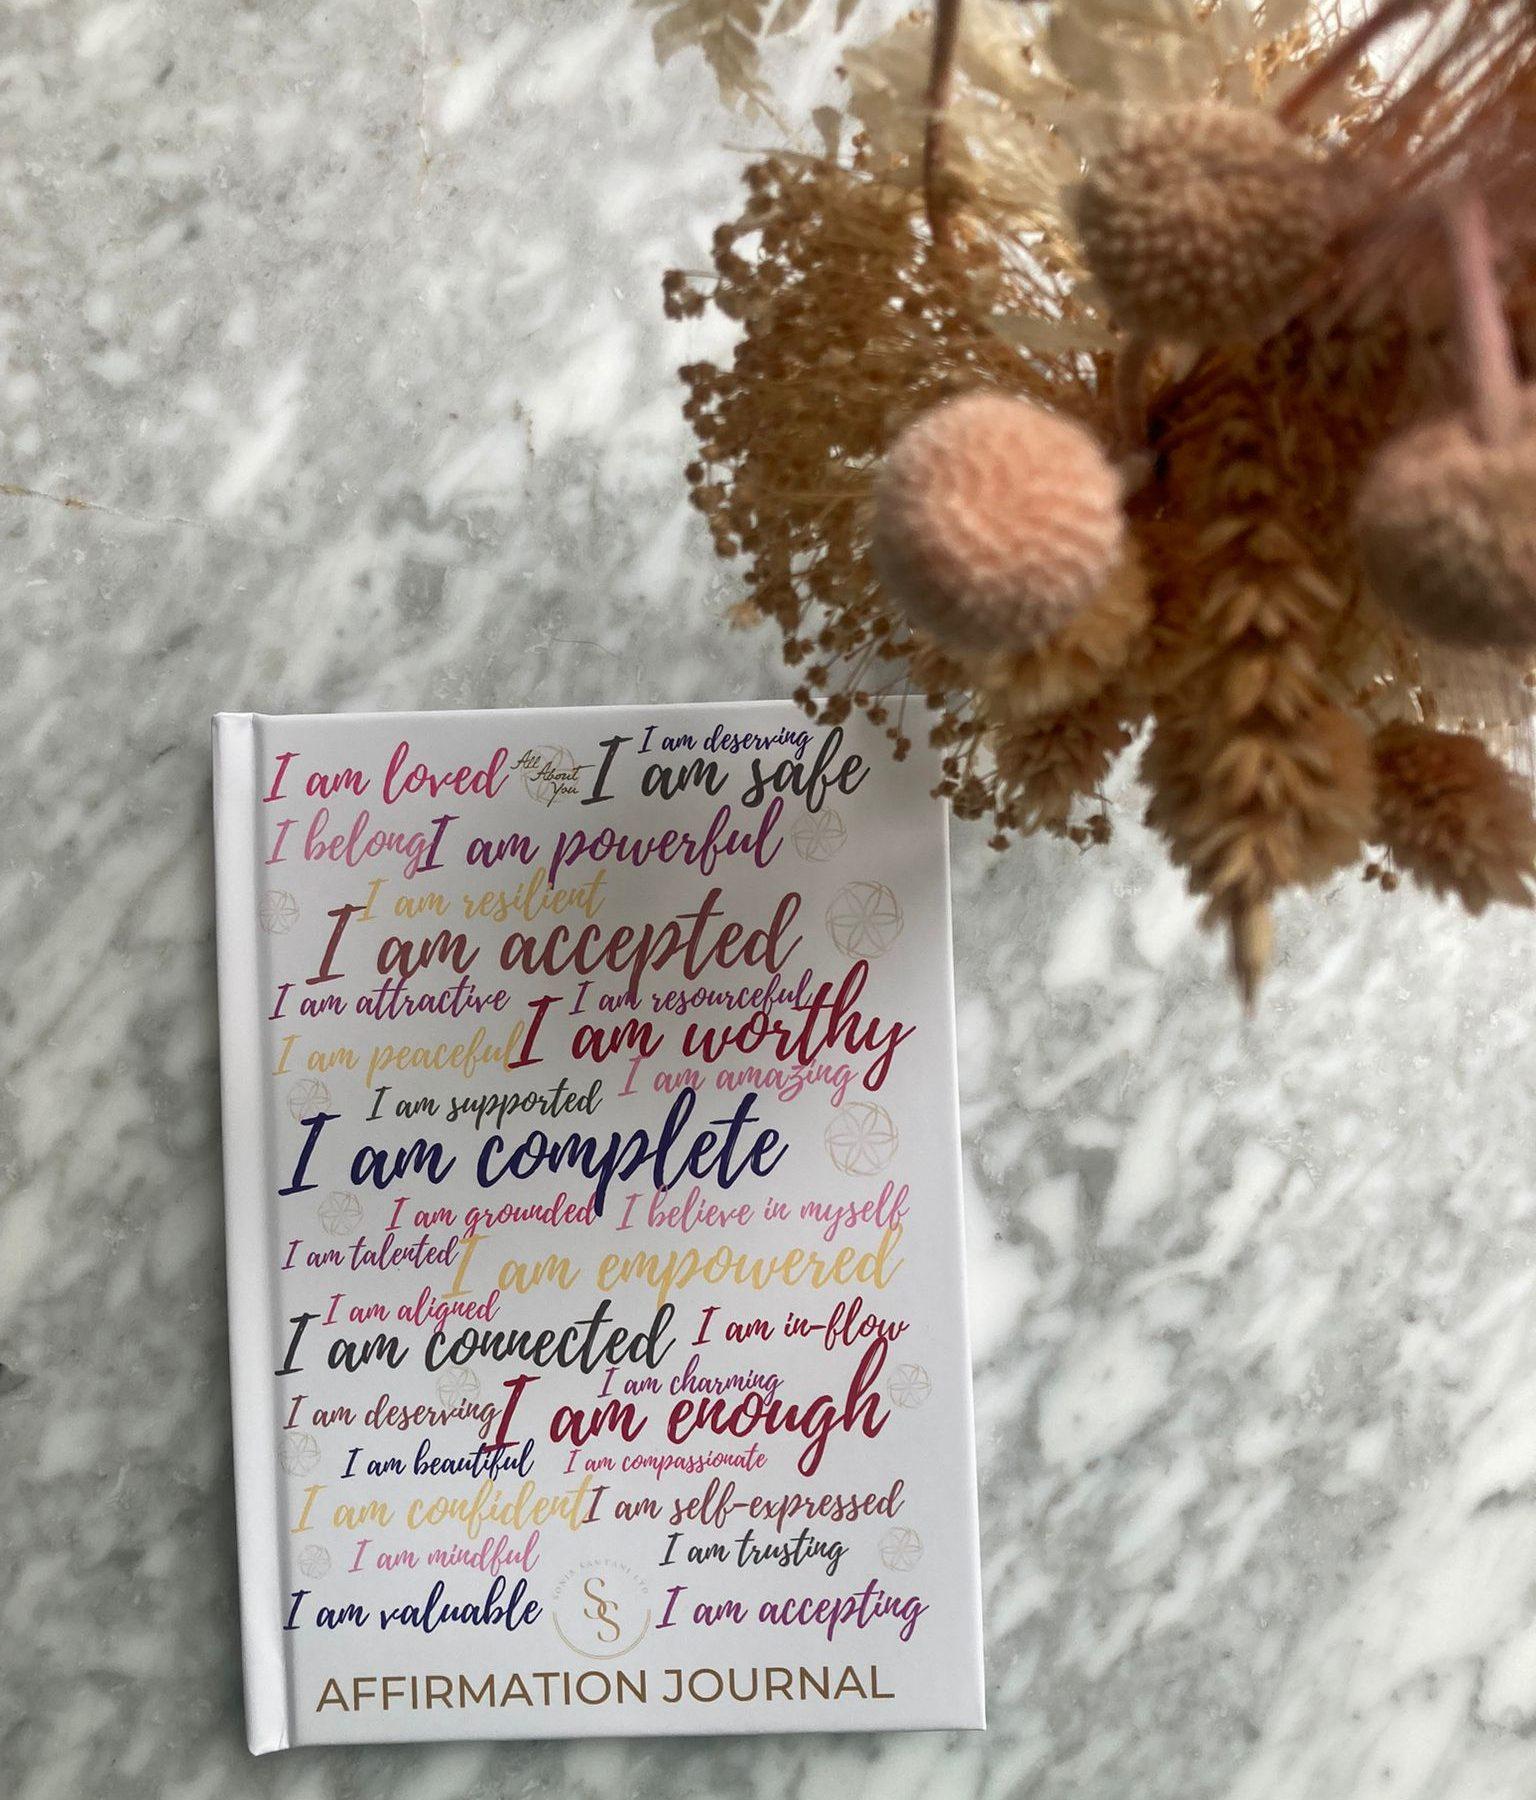 I am deserving
I am loved
All
About
You
I am safe
I belong
I am powerful
I am resilient
I am accepted
I am attractive
I am resourceful
I am peaceful
I am worthy
I am amazing
I am supported
I am complete
I am grounded
I believe in myself
I am talented
I am empowered
I am aligned
I am connected
I am in-flow
I am charming
I am deserving
I am enough
I am beautiful
I am compassionate
I am confident
I am self-expressed
I am mindful
I am trusting
I am valuable
SS
I am accepting
AFFIRMATION JOURNAL